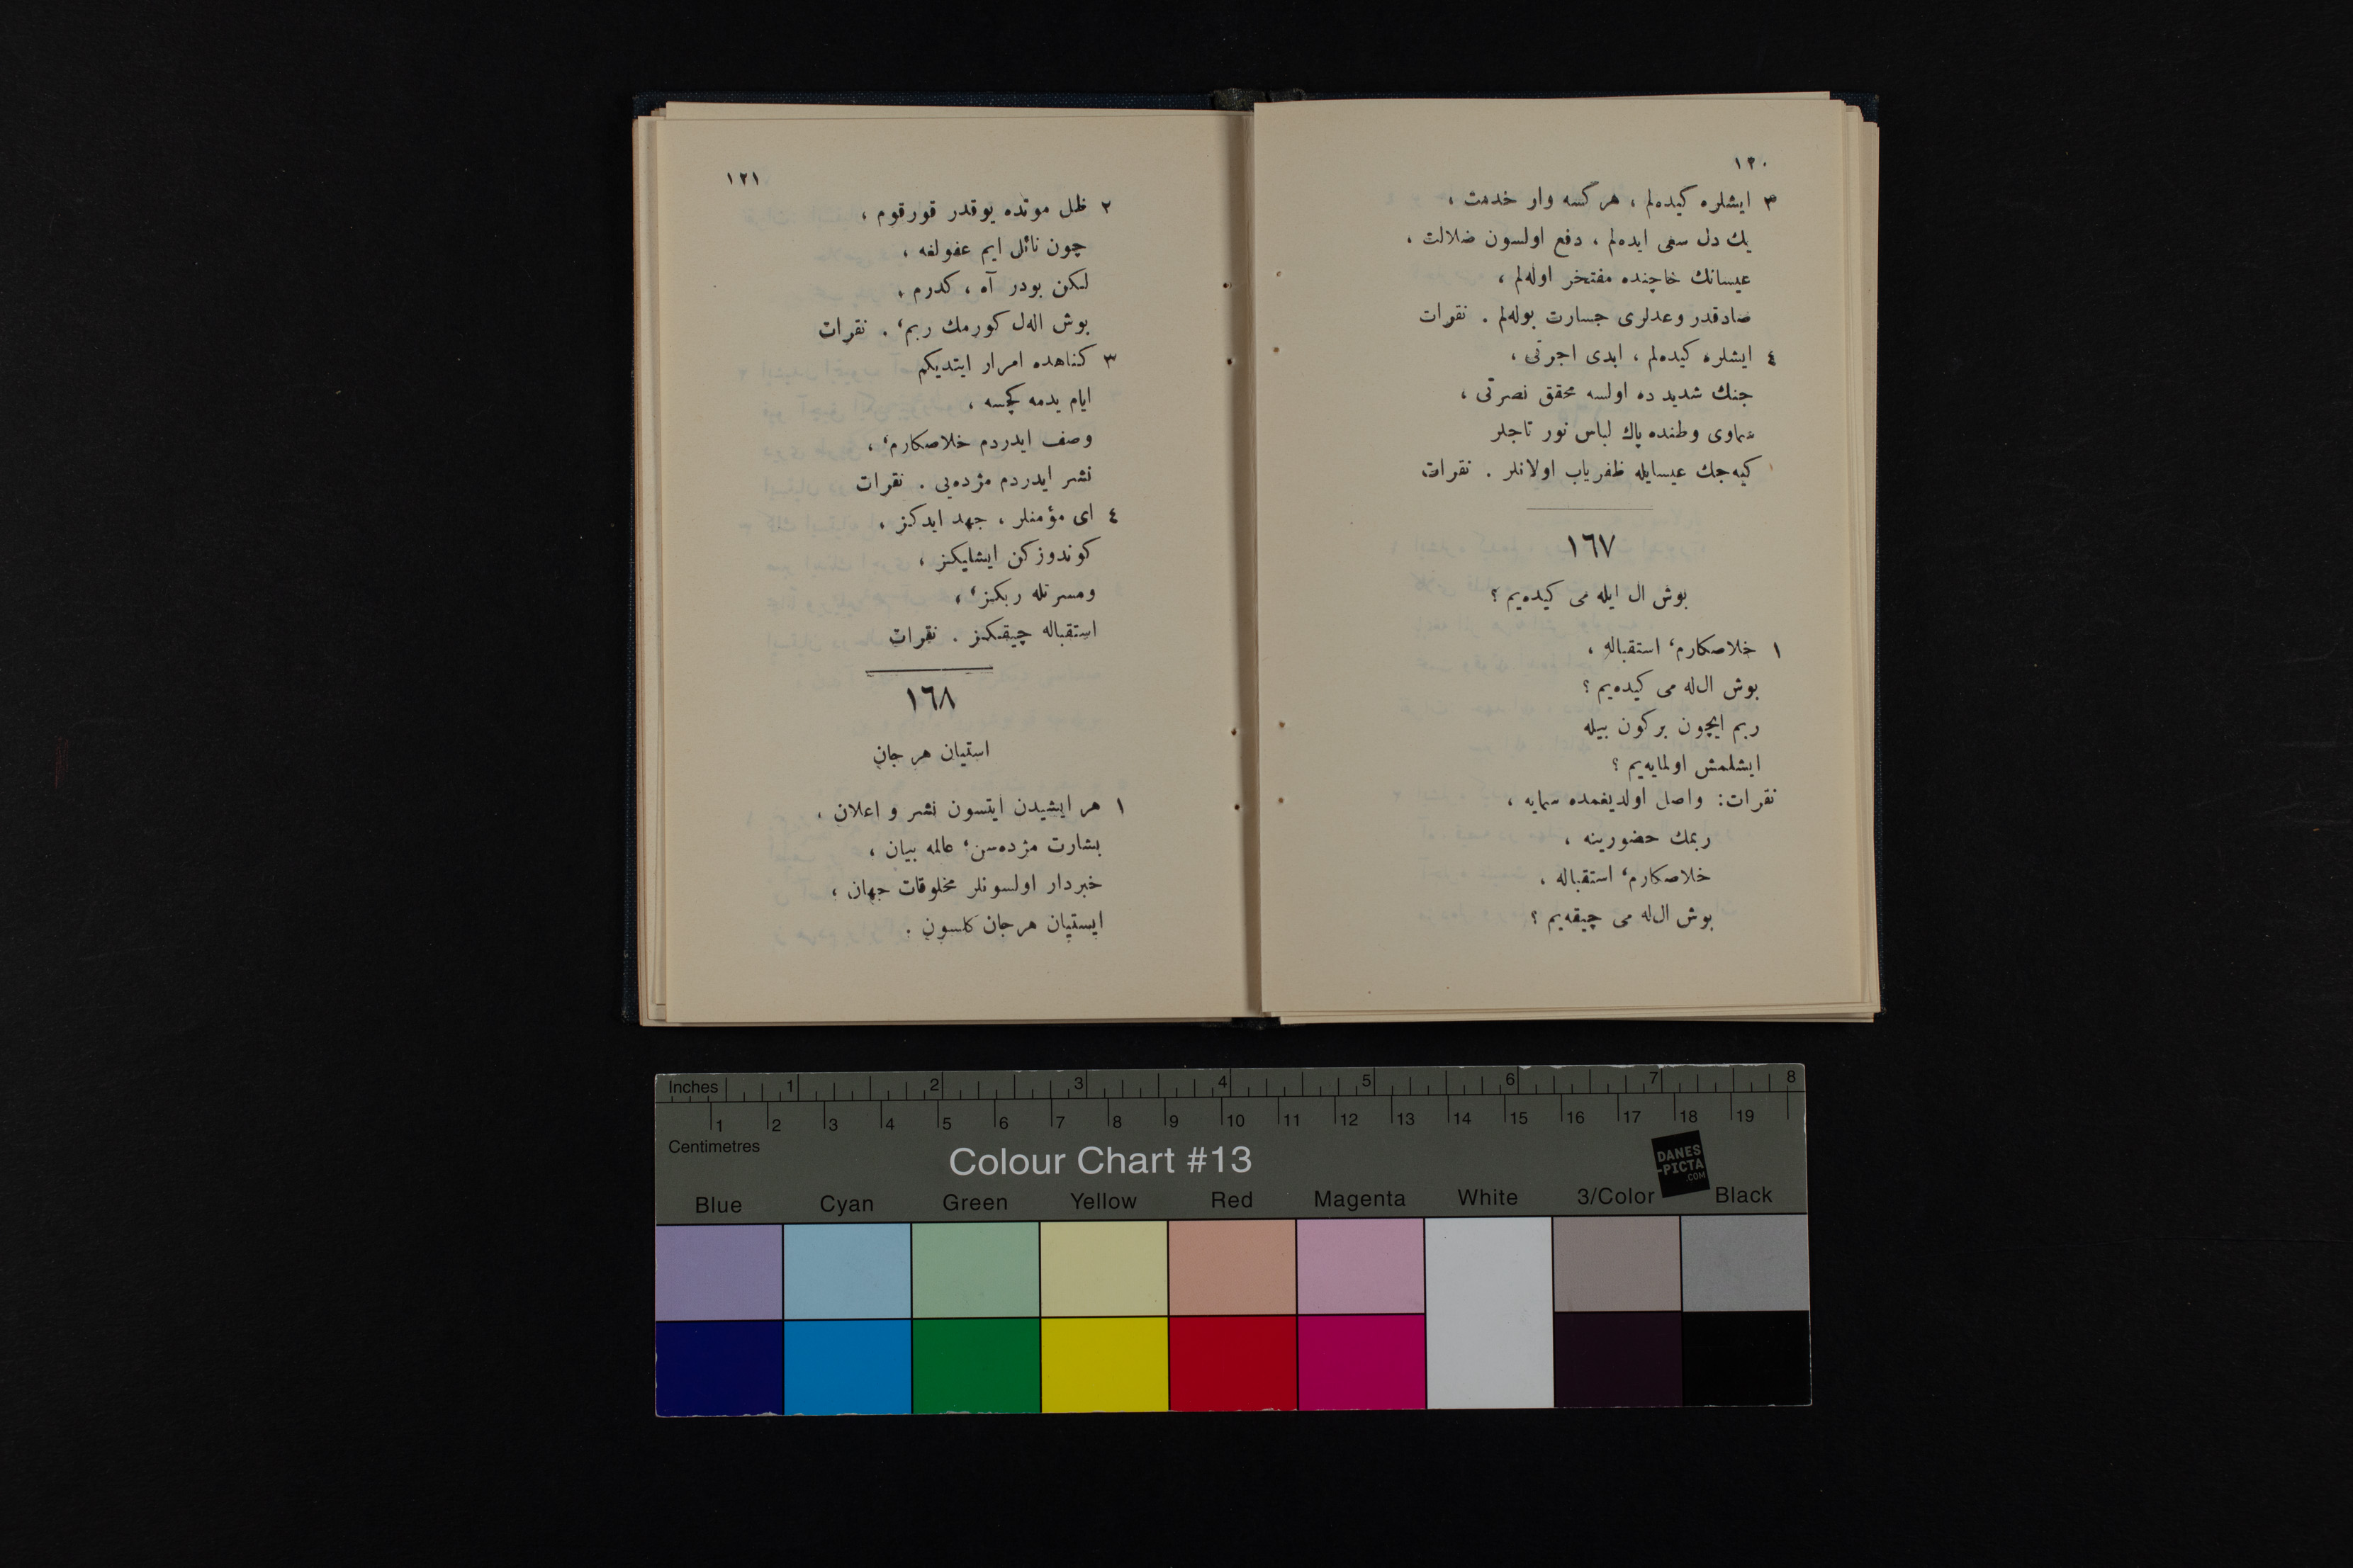 ١٢٠
٣ ايشلره كيده‌لم ، هر كسه وار خدمت ،
يك دل سعى ايده‌لم ، دفع اولسون ضلالت ،
عيسانك خاچنده مفتخر اوله‌لم ،
صادقدر وعدلرى جسارت بوله‌لم . نقرات
٤ ايشلره كيده‌لم ، ابدى اجرتى ،
جنك شديد ده اولسه محقق نصرتى ،
سماوى وطنده پاك لباس نور تاجلر
كيه‌جك عيسايله ظفرياب اولانلر . نقرات
١٦٧
بوش ال ايله مى كيده‌يم ؟
١ خلاصكارم‘ استقباله ،
بوش ال‌له مى كيده‌يم ؟
ربم ايچون بركون بيله
ايشلمش اولمايه‌يم ؟
نقرات: واصل اولديغمده سمايه ،
ربمك حضورينه ،
خلاصكارم‘ استقباله ،
بوش ال‌له مى چيقه‌يم ؟
١٢١
٢ ظل موتده يوقدر قورقوم ،
چون نائل ايم عفولغه ،
لكن بودر آه ، كدرم ،
بوش ال‌ه‌ل كورمك ربم‘ . نقرات
٣ كناهده امرار ايتديكم
ايام يدمه كچسه ،
وصف ايدردم خلاصكارم‘ ،
نشر ايدردم مژده‌يى . نقرات
٤ اى مؤمنلر ، جهد ايدكز ،
كوندوزكن ايشليكز ،
ومسرتله ربكز‘ ،
استقباله چيقكز . نقرات
١٦٨
استيان هر جان
١ هر ايشيدن ايتسون نشر و اعلان ،
بشارت مژده‌سن‘ عالمه بيان ،
خبردار اولسونلر مخلوقات جهان ،
ايستيان هرجان كلسون .
Inches 1 2 3 4 5 6 7 8
1 2 3 4 5 6 7 8 9 10 11 12 13 14 15 16 17 18 19
Centimetres
Colour Chart #13
DANES
-PICTA
.COM
Blue Cyan Green Yellow Red Magenta White 3/Color Black